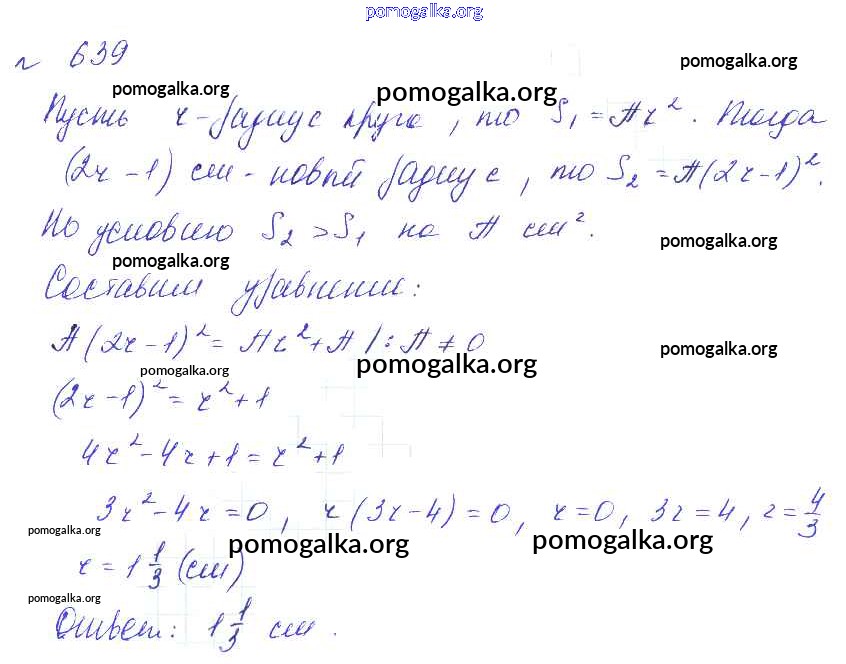 pomogalka.org
№ 639
pomogalka.org
pomogalka.org pomogalka.org
Пусть r - радиус круга, то S₁ = πr². Тогда
(2r - 1) см - новый радиус, то S₂ = π(2r-1)².
По условию S₂ > S₁ на π см².
pomogalka.org
pomogalka.org
Составим уравнение:
π(2r-1)² = πr² + π /: π ≠ 0
pomogalka.org
pomogalka.org pomogalka.org
(2r-1)² = r² + 1
4r² - 4r + 1 = r² + 1
3r² - 4r = 0, r(3r-4) = 0, r = 0, 3r = 4, r = 4/3
pomogalka.org pomogalka.org pomogalka.org
r = 1 1/3 (см)
pomogalka.org
Ответ: 1 1/3 см.